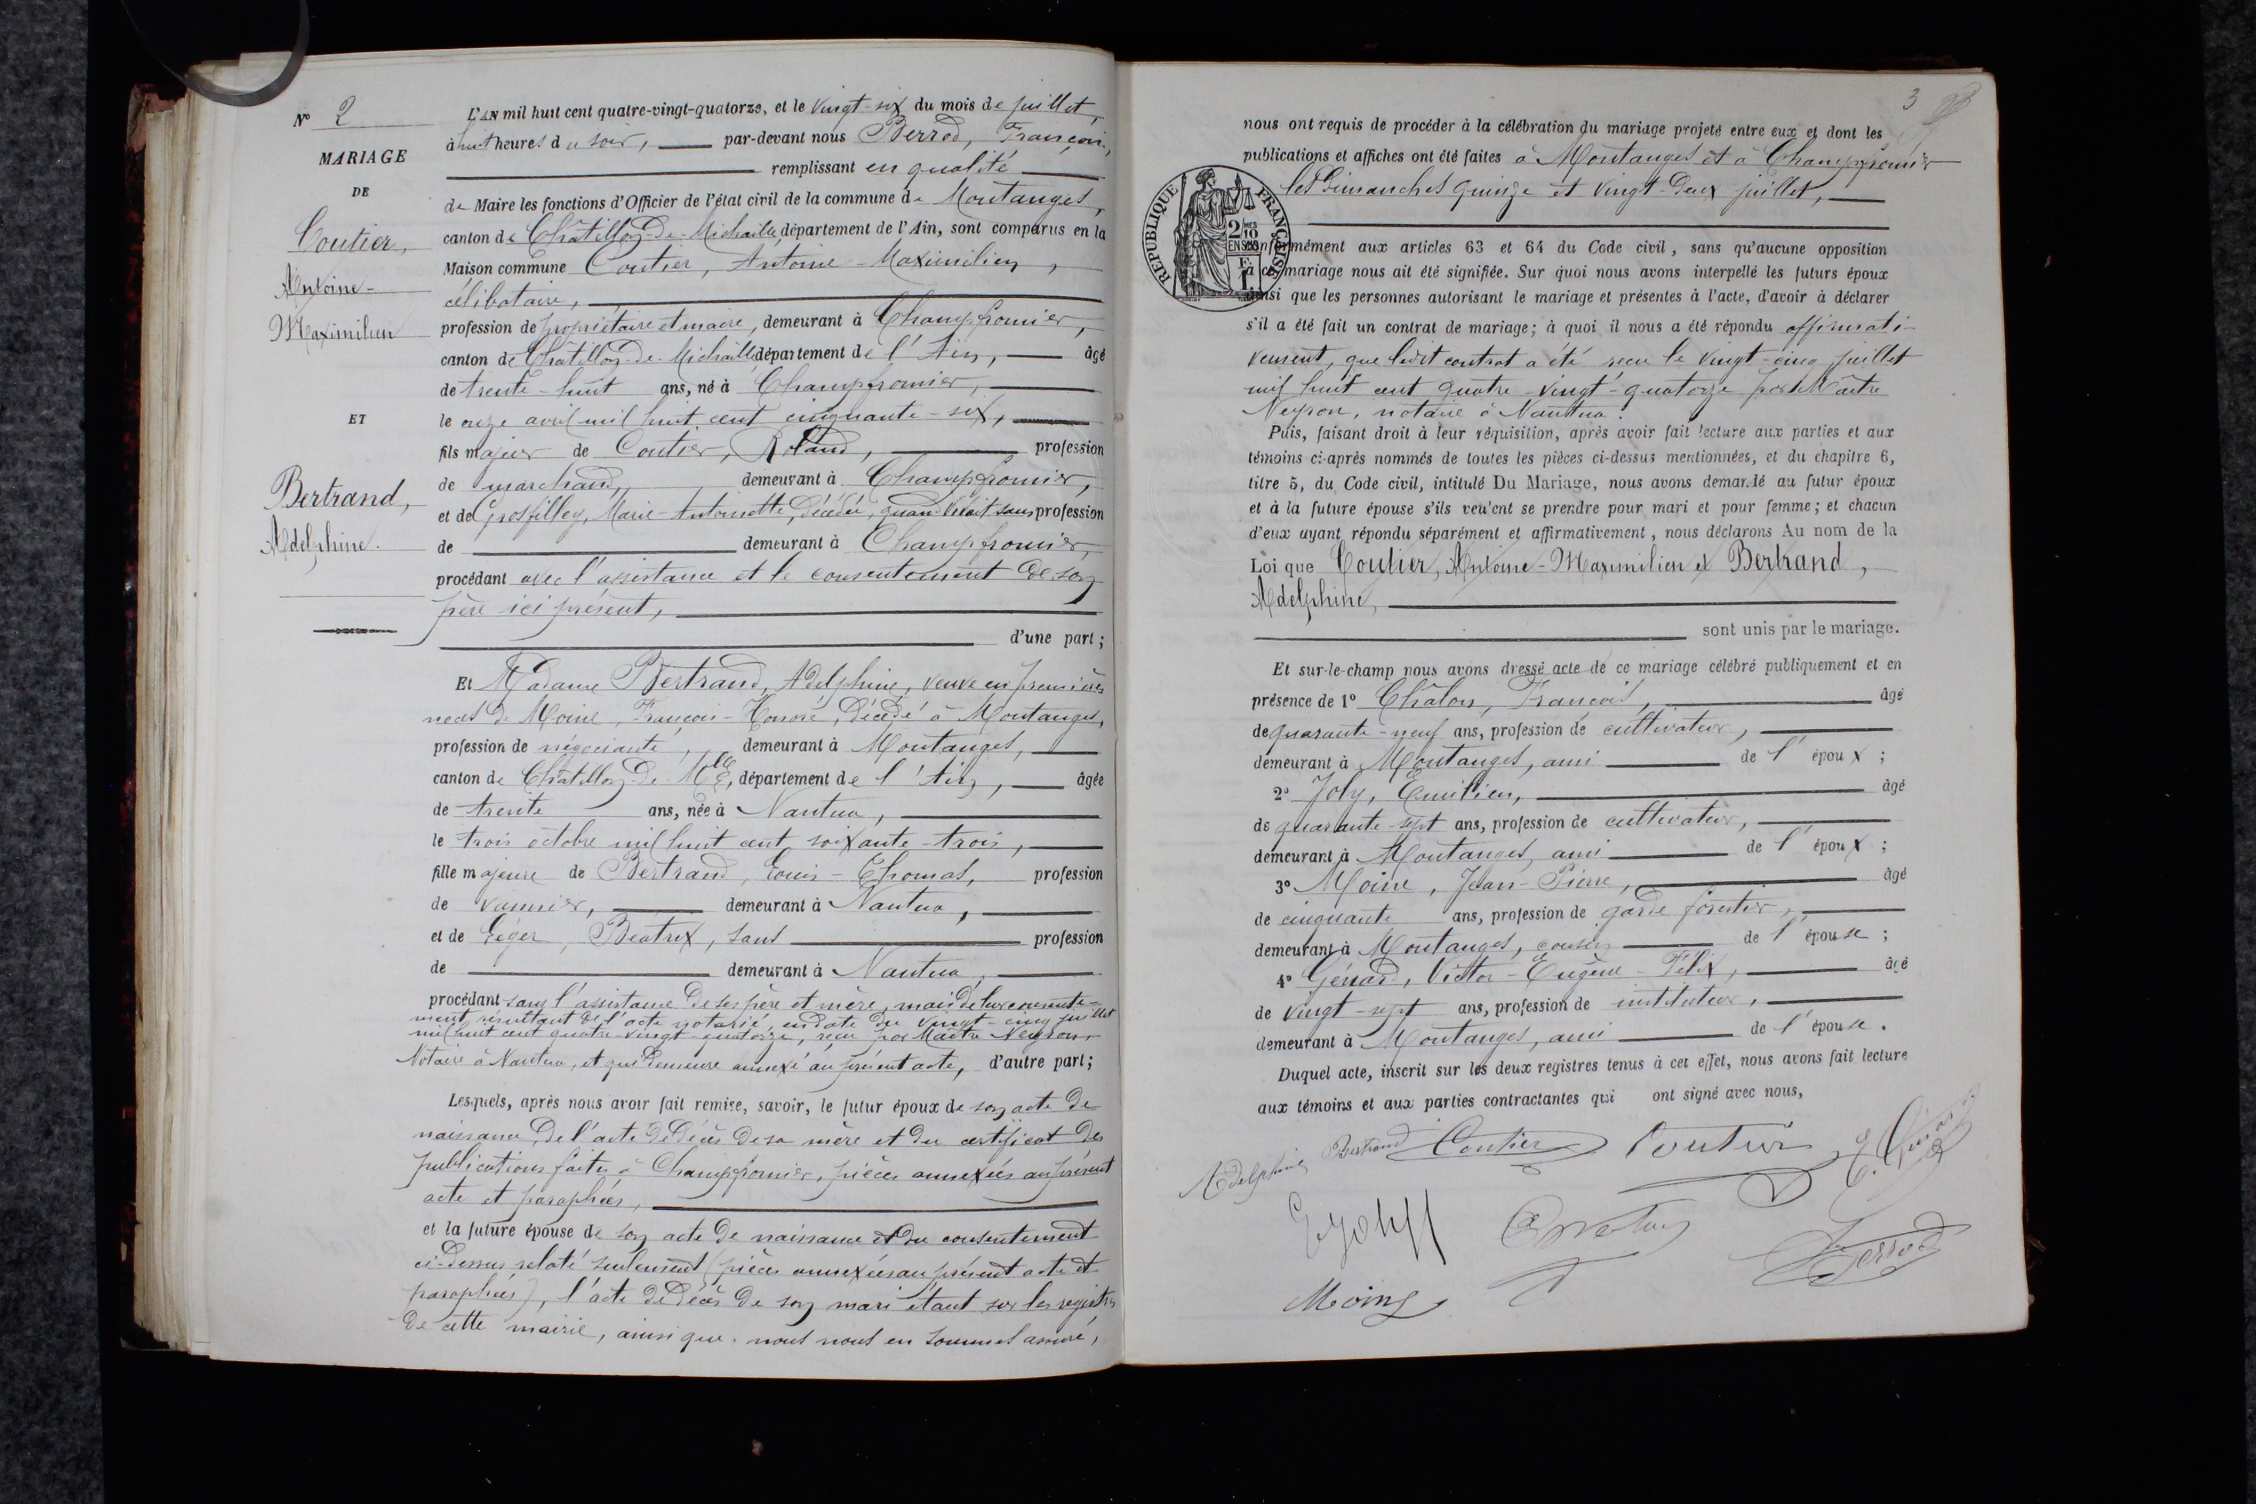 N° 2
MARIAGE
DE
Coutier,
Antoine-
Maximilien
ET
Bertrand,
Adelphine.
L'AN mil huit cent quatre-vingt-quatorze, et le vingt-six du mois de juillet,
à huit heures du soir, par-devant nous Berrod, François,
remplissant en qualité
de Maire les fonctions d'Officier de l'état civil de la commune de Montanges,
canton de Châtillon-de-Michaille, département de l'Ain, sont comparus en la
Maison commune Coutier, Antoine-Maximilien,
célibataire,
profession de propriétaire et maire, demeurant à Champfromier,
canton de Châtillon-de-Michaille département de l'Ain, âgé
de trente-huit ans, né à Champfromier,
le onze avril mil huit cent cinquante-six,
fils majeur de Coutier, Roland, profession
de marchand, demeurant à Champfromier,
et de Grosfilley, Marie-Antoinette, décédée, quand vivait sans profession
de demeurant à Champfromier,
procédant avec l'assistance et le consentement de son
père ici présent,
d'une part;
Et Madame Bertrand, Adelphine, veuve en premières
noces de Moine, François-Honoré, décédé à Montanges,
profession de négociante, demeurant à Montanges,
canton de Châtillon-de-Mlle, département de l'Ain, âgée
de trente ans, née à Nantua,
le trois octobre mil huit cent soixante-trois,
fille majeure de Bertrand, Louis-Thomas, profession
de vannier, demeurant à Nantua,
et de Léger, Béatrix, sans profession
de demeurant à Nantua,
procédant sans l'assistance de ses père et mère, mais de leur consente-
ment, résultant de l'acte notarié, en date du vingt-cinq juillet
mil huit cent quatre-vingt-quatorze, reçu par Maître Neyron,
Notaire à Nantua, et qui demeure annexé au présent acte, d'autre part;
Lesquels, après nous avoir fait remise, savoir, le futur époux de son acte de
naissance, de l'acte de décès de sa mère et du certificat des
publications faites à Champfromier, pièces annexées au présent
acte et paraphées,
et la future épouse de son acte de naissance et du consentement
ci-dessus relaté seulement (pièces annexées au présent acte et
paraphées), l'acte de décès de son mari étant sur les registres
de cette mairie, ainsi que nous nous en sommes assuré,
3
nous ont requis de procéder à la célébration du mariage projeté entre eux et dont les
publications et affiches ont été faites à Montanges et à Champfromier
les dimanches quinze et vingt-deux juillet,
RÉPUBLIQUE FRANÇAISE
2 MES 10
EN SUS
1 F.
conformément aux articles 63 et 64 du Code civil, sans qu'aucune opposition
à ce mariage nous ait été signifiée. Sur quoi nous avons interpellé les futurs époux
ainsi que les personnes autorisant le mariage et présentes à l'acte, d'avoir à déclarer
s'il a été fait un contrat de mariage; à quoi il nous a été répondu affirmati-
vement, que ledit contrat a été reçu le vingt-cinq juillet
mil huit cent quatre-vingt-quatorze par Maître
Neyron, notaire à Nantua.
Puis, faisant droit à leur réquisition, après avoir fait lecture aux parties et aux
témoins ci-après nommés de toutes les pièces ci-dessus mentionnées, et du chapitre 6,
titre 5, du Code civil, intitulé Du Mariage, nous avons demandé au futur époux
et à la future épouse s'ils veulent se prendre pour mari et pour femme; et chacun
d'eux ayant répondu séparément et affirmativement, nous déclarons Au nom de la
Loi que Coutier, Antoine-Maximilien et Bertrand,
Adelphine,
sont unis par le mariage.
Et sur-le-champ nous avons dressé acte de ce mariage célébré publiquement et en
présence de 1° Châlon, François, âgé
de quarante-neuf ans, profession de cultivateur,
demeurant à Montanges, ami de l'époux;
2° Joly, Emilien, âgé
de quarante-sept ans, profession de cultivateur,
demeurant à Montanges, ami de l'époux;
3° Moine, Jean-Pierre, âgé
de cinquante ans, profession de garde forestier,
demeurant à Montanges, cousin de l'épouse;
4° Génard, Victor-Eugène-Félix, âgé
de vingt-sept ans, profession de instituteur,
demeurant à Montanges, ami de l'épouse.
Duquel acte, inscrit sur les deux registres tenus à cet effet, nous avons fait lecture
aux témoins et aux parties contractantes qui ont signé avec nous,
Adelphine Bertrand Coutier Coutier
E Joly Berrod
Moine